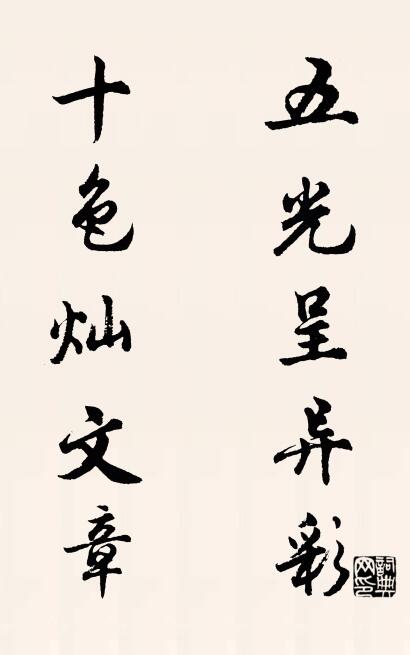 五光呈异彩
十色灿文章
詞典网印